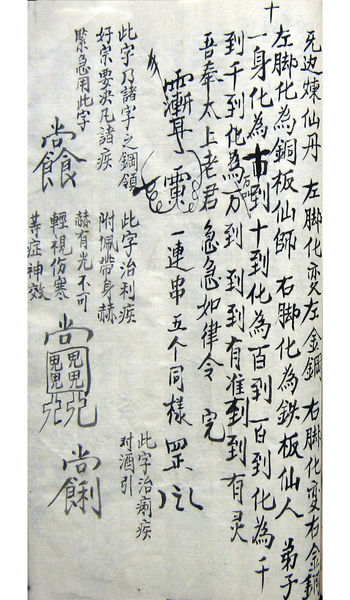 死边煉仙丹 左脚化变左金鋼 右脚化变右金鋼
左脚化為銅板仙師 右脚化為鉄板仙人 弟子
一身化為十到十化為百到百化為千
到千化為万到到到有准到到有灵
吾奉太上老君急急如律令 完
一連串五个同樣
此字乃諸字之鋼領
好宗要夹凡諸疾
緊急用此字
此字治利疾
附佩帶身赫
赫有光不可
輕視伤寒
等症神效
此字治痢疾
对酒引